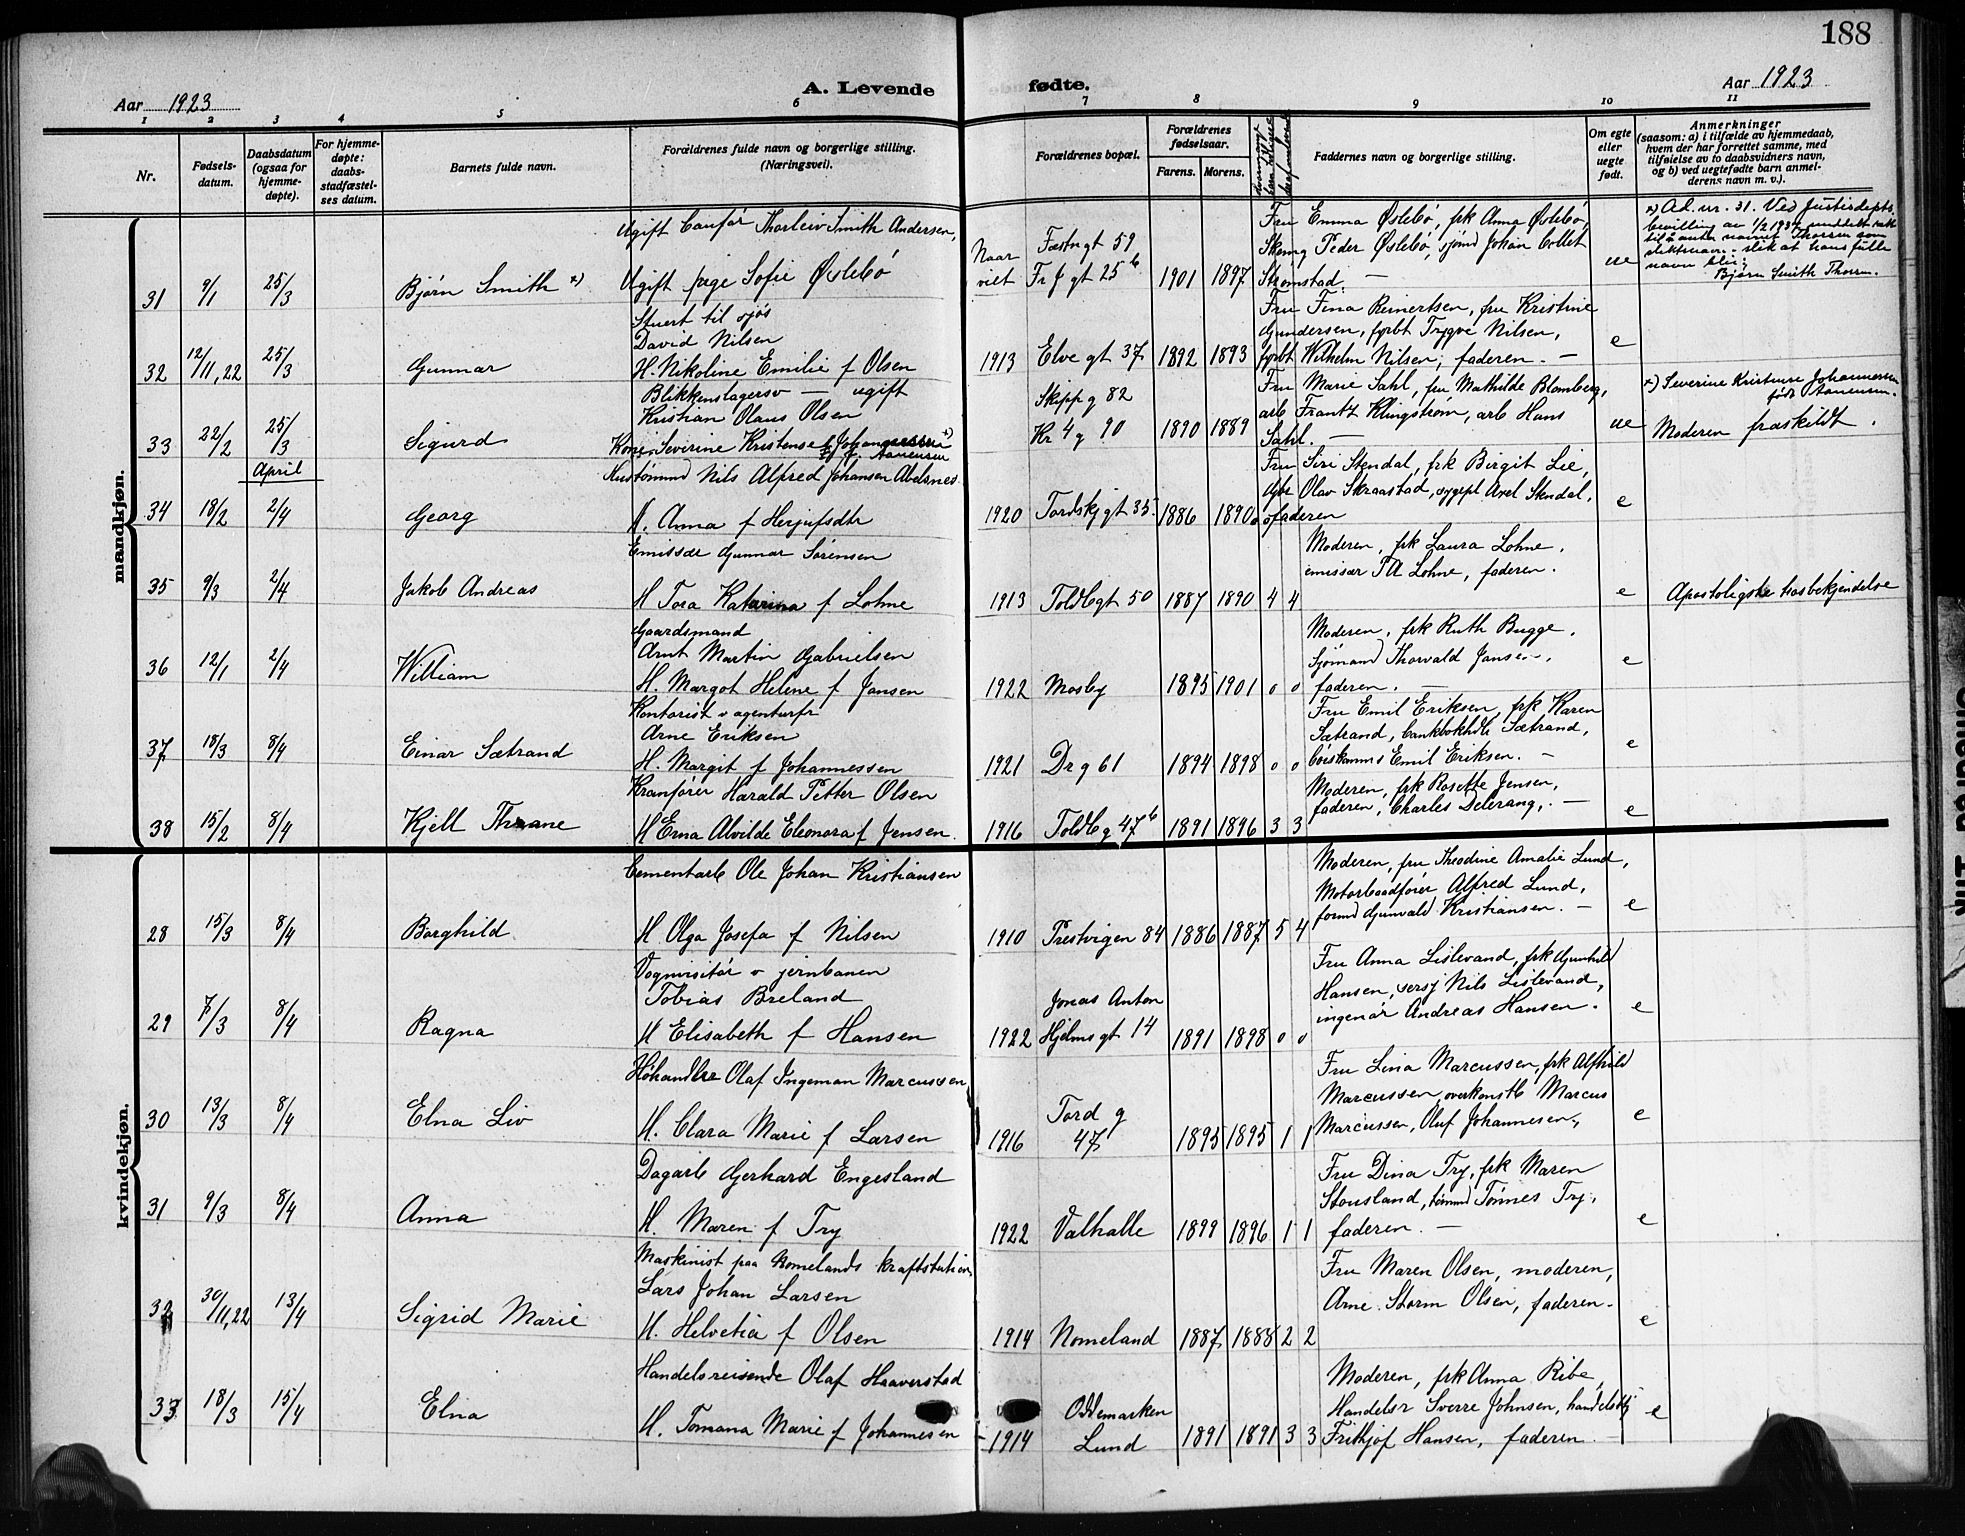 188
Aar 1923
A. Levende fødte.
Aar 1923
1 2 3 4 5 6 7 8 9 10 11
Nr.
Fødsels-
datum.
Daabsdatum
(ogsaa for
hjemme-
døpte).
For hjemme-
døpte:
daabs-
stadfæstel-
ses datum.
Barnets fulde navn.
Forældrenes fulde navn og borgerlige stilling.
(Næringsvei).
Forældrenes bopæl.
Forældrenes
fødselsaar.
Farens. Morens.
Faddernes navn og borgerlige stilling.
Om egte
eller
uegte
født.
Anmerkninger
(saasom: a) i tilfælde av hjemmedaab,
hvem der har forrettet samme, med
tilføielse av to daabsvidners navn,
og b) ved uegtefødte barn anmel-
derens navn m. v.).
mandkjøn.
31 9/1 25/3 Bjørn Smith x)
Ugift Thorleiv Smith Andersen,
Ugift pige Sofie Øslebø
Fæstn gt 59
Fr J gt 25 b
1901 1897
Fru Emma Øslebø, frk Anna Øslebø,
Peder Øslebø, sjømd Johan Collet
Strømstad. —
ue
x) Ad. nr. 31. Ved Justisdepts
bevilling av 1/2 1934 meddelt
navnet Thorsen som
slektnavn – slik at hans fulle
navn blir:
Bjørn Smith Thorsen.
32 12/11,22 25/3 Gunnar
Stuert til sjøs
David Nilsen
H. Nikoline Emilie f Olsen
1913 Elve gt 37 1892 1893
Fru Tina Reinertsen, fru Kristine
Gundersen, fyrbt Trygve Nilsen,
fyrbt Wilhelm Nilsen, faderen. —
e
33 22/2 25/3 Sigurd
Blikkenslagersv — ugift
Kristian Olaus Olsen
Kone Severine Kristense f Johannessen x)
f. Aanensen
Skipp g 82
Kr 4 g 90
1890 1889
Fru Marie Sahl, fru Mathilde Blomberg,
arb Frantz Klingstrøm, arb Hans
Sahl. —
ue
x) Severine Kristense Johannessen
født Aanensen.
Moderen fraskildt.
April
34 18/2 2/4 Georg
Nils Alfred Johansen Abelsnes
H. Anna f Herjufsdtr
1920 Tordskj gt 35 1886 1890 0 0
Fru Siri Stendal, frk Birgit Lie,
Olav Skraastad, Axel Stendal,
faderen
e
35 9/3 2/4 Jakob Andreas
Emissær Gunnar Sørensen
H Tora Katarina f Lohne
1913 Toldbgt 50 1887 1890 4 4
Moderen, frk Laura Lohne,
emissær P A Lohne, faderen.
e
Apostoligske trosbekjendelse
36 12/1 2/4 William
Gaardsmand
Arnt Martin Gabrielsen
H. Margot Helene f Jansen
1922 Mosby 1895 1901 0 0
Moderen, frk Ruth Bugge,
Sjømand Thorvald Jansen,
faderen. —
e
37 18/3 8/4 Einar Sætrand
Kontorist v agenturfr
Arne Eriksen
H. Margit f Johannessen
1921 Dr g 61 1894 1898 0 0
Fru Emil Eriksen, frk Karen
Sætrand, bankbokhdl Sætrand,
Emil Eriksen. —
e
38 15/2 8/4 Kjell Thrane
Kranfører Harald Petter Olsen
H Erna Alvilde Eleonora f Jensen.
1916 Toldb g 47 b 1891 1896 3 3
Moderen, frk Rosette Jensen,
faderen, Charles Delerang, —
e
kvindekjøn.
28 15/3 8/4 Borghild
Cementarb Ole Johan Kristiansen
H Olga Josefa f Nilsen
1910 Prestvigen 84 1886 1887 5 4
Moderen, fru Theodine Amalie Lund,
Motorbaadfører Alfred Lund,
formd Gunvald Kristiansen. —
e
29 7/3 8/4 Ragna
Vognvisitør v jernbanen
Tobias Breland
H Elisabeth f Hansen
Jonas Anton
1922 Hjelms gt 14 1891 1898 0 0
Fru Anna Lislevand, frk Gunhild
Hansen, sersj Nils Lislevand,
ingeniør Andreas Hansen.
e
30 13/3 8/4 Elna Liv
Høhandler Olaf Ingeman Marcussen
H. Clara Marie f Larsen
1916 Tord g
47 1895 1895 1 1
Fru Lina Marcussen, frk Alfhild
Marcussen, overkonstb Marcus
Marcussen, Oluf Johannesen,
e
31 9/3 8/4 Anna
Dagarb Gerhard Engesland
H. Maren f Try
1922 Valhalle 1899 1896 1 1
Fru Dina Try, frk Maren
Stousland, tømmd Tønnes Try,
faderen. —
e
32 30/11,22 13/4 Sigrid Marie
Maskinist paa Nomelands kraftstation
Lars Johan Larsen
H. Helvetia f Olsen
1914 Nomeland 1887 1888 2 2
Fru Maren Olsen, moderen,
Arne Storm Olsen, faderen.
e
33 18/3 15/4 Elna
Handelsreisende Olaf Haaverstad
H. Tomana Marie f Johannesen
1914 Oddemarken
Lund 1891 1891 3 3
Moderen, frk Anna Ribe,
Handelsr Sverre Johnsen, handelsbtj
Frithjof Hansen, faderen
e